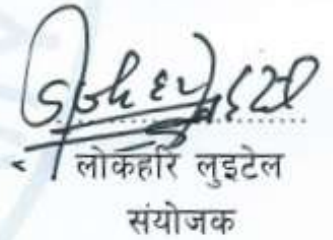 लोकहरि लुइटेल
संयोजक